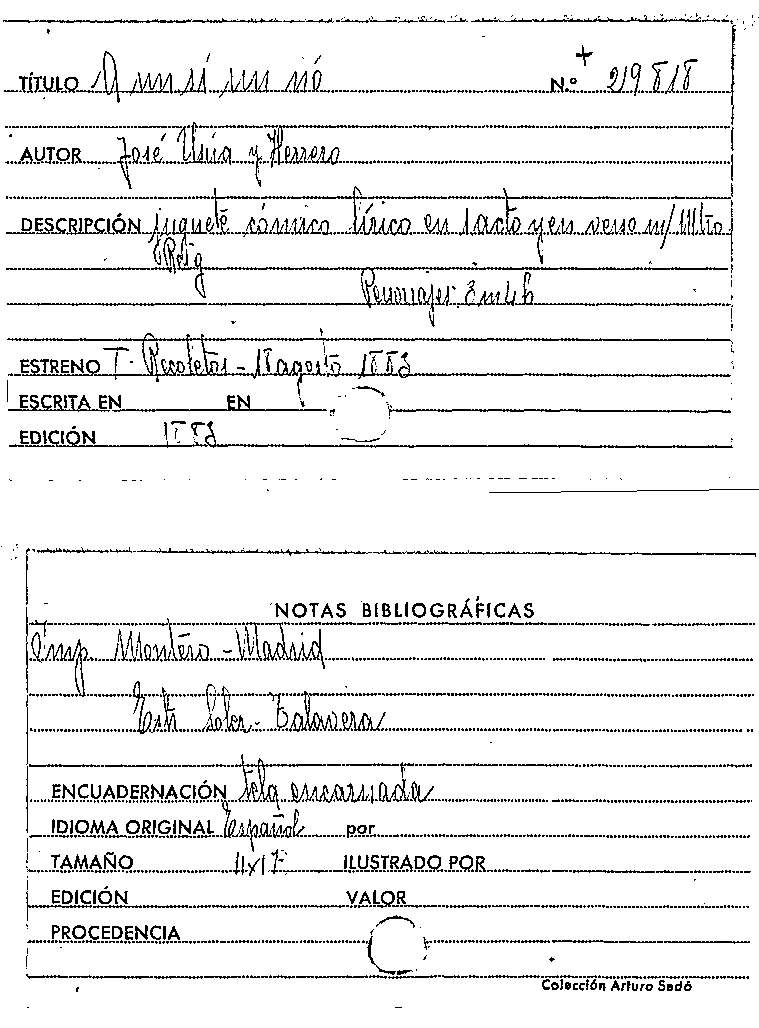 TÍTULO A un sí un nó N.º 219818
AUTOR José Usúa y Herrero
DESCRIPCIÓN juguete cómico lírico en 1 acto y en verso m/ Mtro
Reig
Personajes: 3m 4h
ESTRENO T. Recoletos - 18 agosto 1883
ESCRITA EN EN
EDICIÓN 1883
NOTAS BIBLIOGRÁFICAS
Imp. Montero - Madrid
Soler - Talavera
ENCUADERNACIÓN tela encarnada
IDIOMA ORIGINAL Español por
TAMAÑO 11x17 ILUSTRADO POR
EDICIÓN VALOR
PROCEDENCIA
Colección Arturo Sedó